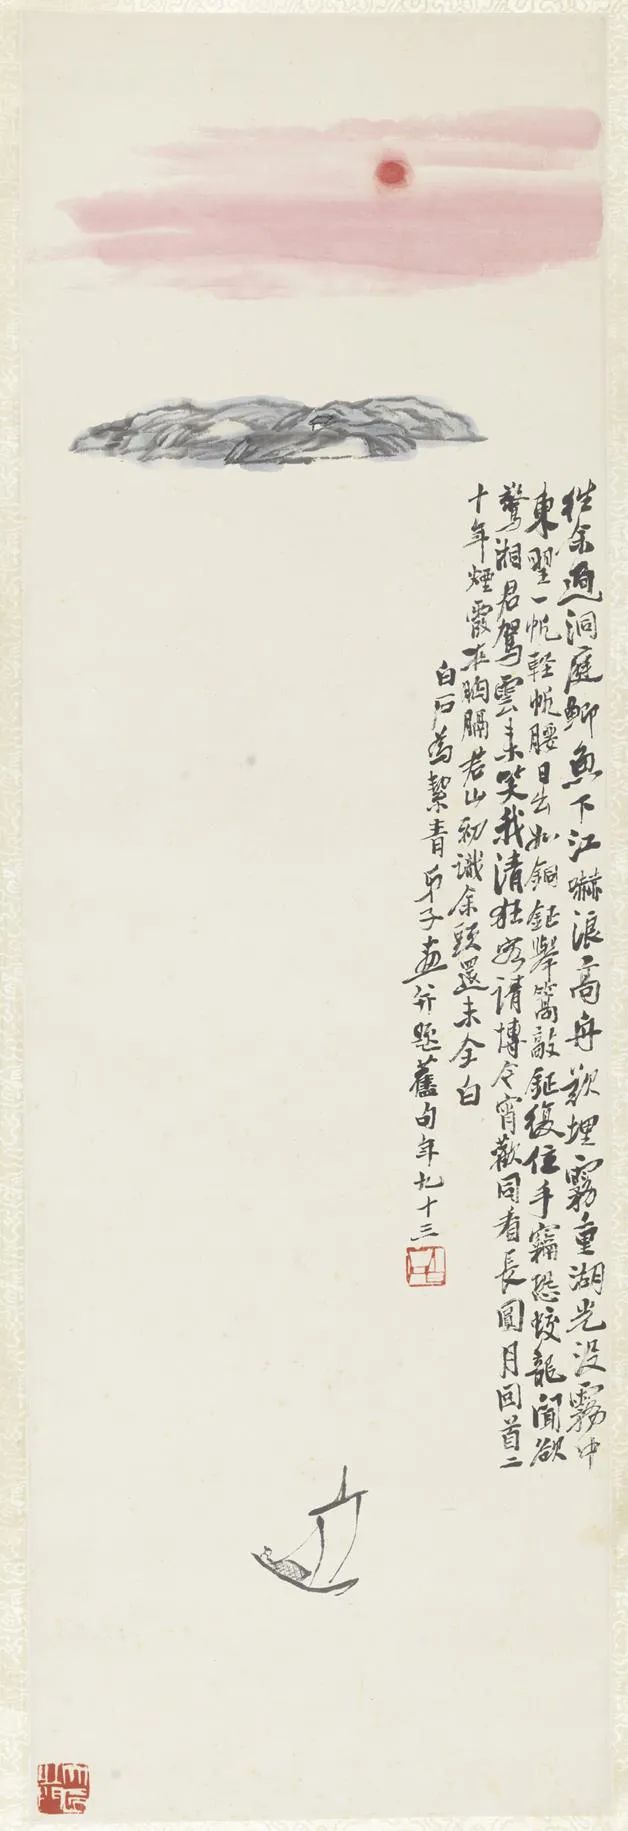 往余過洞庭鯽魚下江嚇浪高舟欲埋霧重湖光没霧中
東望一帆輕帆腰日出如銅鉦舉篙敲鉦復住手竊恐蛟龍聞欲
驚湘君駕雲来笑我清狂客請博今宵歡同看長圓月回首二
十年煙霞在胸膈君山初識余頭還未全白
白石為絜青弟子畫并題舊句年九十三
白石
大匠之門